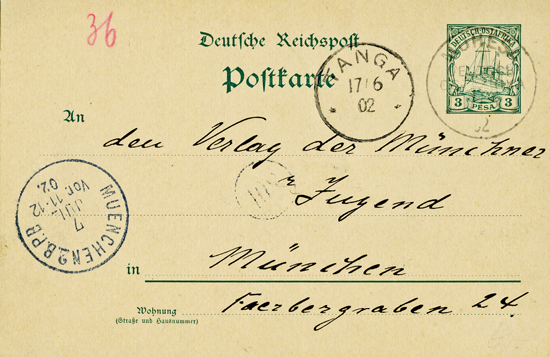 36
Deutsche Reichspost
Postkarte
TANGA
17/6
02
DEUTSCH-OSTAFRIKA
3 PESA 3
An
den Verlag der Münchner
Jugend
MUENCHEN 2 B.P.B
7
JUL
Vor. 11-12
02.
in München
Wohnung
(Straße und Hausnummer)
Faerbergraben 24.